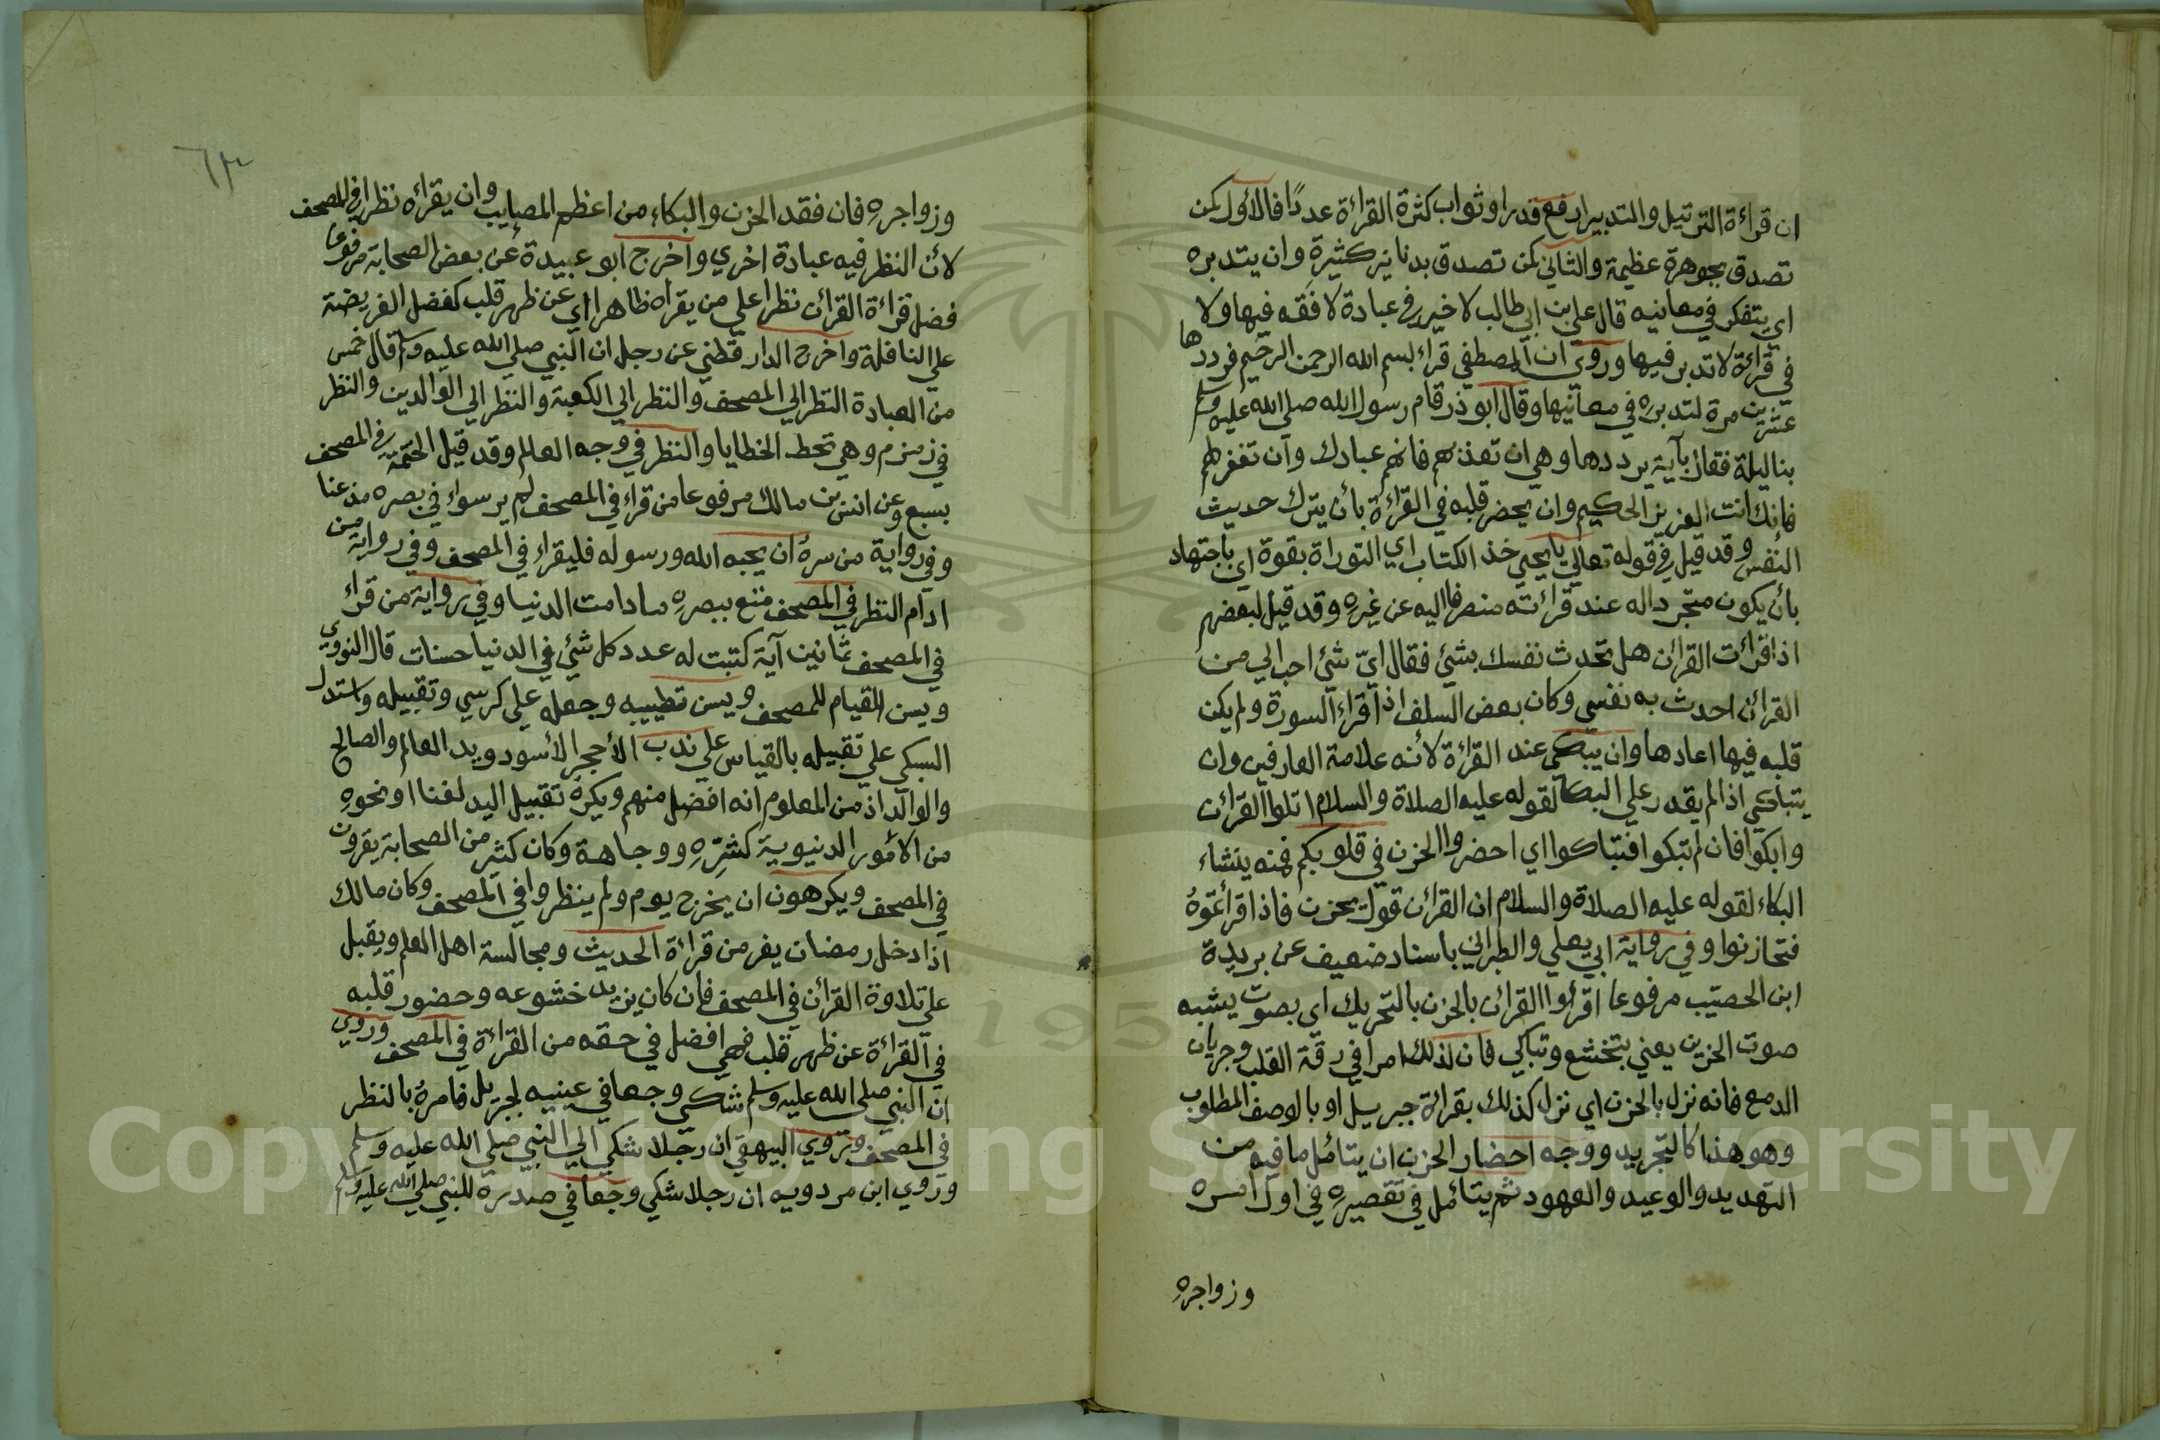 ان قراءة الترتيل والتدبير ارفع قدرا وثواب كثرة القراءة عددًا فالأول كمن
تصدق بجوهرة عظيمة والثاني كمن تصدق بدنانير كثيرة وان يتدبره
اي يتفكر في معانيه قال علي بن ابي طالب لا خير في عبادة لا فقه فيها ولا
في قراءة لا تدبر فيها وروي ان المصطفي قراء بسم الله الرحمن الرحيم فرددها
عشرين مرة لتدبره في معانيها وقال ابو ذر قام رسول الله صلى الله عليه وسلم
بنا ليلة فقام بآية يرددها وهي ان تعذبهم فانهم عبادك وان تغفر لهم
فانك انت العزيز الحكيم وان يحضر قلبه في القراءة بأن يترك حديث
النفس وقد قيل في قوله تعالي يا يحيي خذ الكتاب اي التوراة بقوة اي باجتهاد
بأن يكون متجردا له عند قرائته منصرفا اليه عن غيره وقد قيل لبعضهم
اذا قرائت القرائن هل تحدث نفسك بشئ فقال ايّ شئ احب الي من
القرائن احدث به نفسي وكان بعض السلف اذا قراء السورة ولم يكن
قلبه فيها اعادها وان يبكي عند القراءة لأنه علامة العارفين وان
يتباكي اذا لم يقدر علي البكا لقوله عليه الصلاة والسلام اتلوا القرائن
وابكوا فان لم تبكوا فتباكوا اي احضروا الحزن في قلوبكم فمنه ينشاء
البكاء لقوله عليه الصلاة والسلام ان القرائن قول بحزن فاذا قرأتموهُ
فتحازنوا وفي رواية ابي يعلي والطبراني باسناد ضعيف عن بريدة
ابن الحصيب مرفوعا اقرأوا القرائن بالحزن بالتحريك اي بصوت يشبه
صوت الحزين يعني بتخشع وتباكي فان لذلك امرا في رقة القلب وجريان
الدمع فانه نزل بالحزن اي نزل كذلك بقرائة جبريل او بالوصف المطلوب
وهو هذا كالتجريد ووجه احضار الحزن ان يتامل ما فيه من
التهديد والوعيد والعهود ثم يتائمل في تقصيره في اول امره
وزواجره
٦٣
وزواجره فان فقد الحزن والبكاء من اعظم المصايب وان يقراءه نظرا في المصحف
لأن النظر فيه عبادة اخري واخرج ابو عبيدة عن بعض الصحابة مرفوعا
فضل قراءة القرائن نظرا علي من يقراه ظاهرا اي عن ظهر قلب كفضل الفريضة
علي النافلة واخرج الدار قطني عن رجل ان النبي صلي الله عليه وسلم قال خمس
من العبادة النظر الي المصحف والنظر الي الكعبة والنظر الي الوالدين والنظر
في زمزم وهي تحط الخطايا والنظر في وجه العالم وقد قيل الختمة في المصحف
بسبع وعن انس بن مالك مرفوعا من قراء في المصحف لم ير سواء في بصره منذ عنا
وفي رواية من سره ان يحبه الله ورسوله فليقراء في المصحف وفي رواية من
ادام النظر في المصحف متع ببصره مادامت الدنيا وفي رواية من قراء
في المصحف ثمانين آية كتبت له عدد كل شئ في الدنيا حسنات قال النووي
ويسن القيام للمصحف ويسن تطييبه وجعله علي كرسي وتقبيله واستدل
السبكي علي تقبيله بالقياس علي ندب الأحجر الأسود ويد العالم والصالح
والوالد اذ من المعلوم انه افضل منهم ويكره تقبيل اليد لغنا او نحوه
من الأمور الدنيوية كشره ووجاهة وكان كثر من الصحابة يقرون
في المصحف ويكرهون ان يخرج يوم ولم ينظروا في المصحف وكان مالك
اذا دخل رمضان يفر من قراءة الحديث ومجالسة اهل العلم ويقبل
علي تلاوة القرائن في المصحف فان كان يزيد خشوعه وحضور قلبه
في القراءة عن ظهر قلب فهي افضل في حقه من القراءة في المصحف وروي
ان النبي صلى الله عليه وسلم شكي وجعا في عينيه لجبريل فامره بالنظر
في المصحف وروي البيهقي ان رجلا شكي الي النبي صلي الله عليه وسلم
وروي ابن مردويه ان رجلا شكي وجعا في صدره للنبي صلي الله عليه وسلم
1957
Copyright © King Saud University